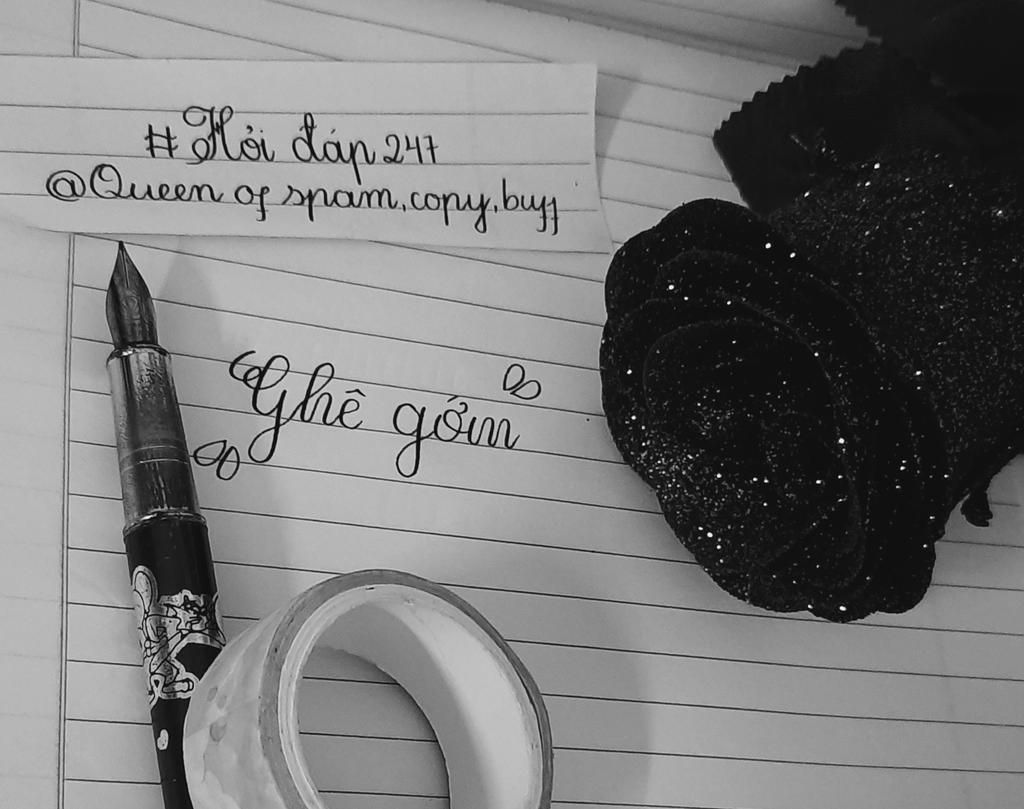 #Hỏi đáp 247
@Queen of spam,copy,buff
“Ghê gớm